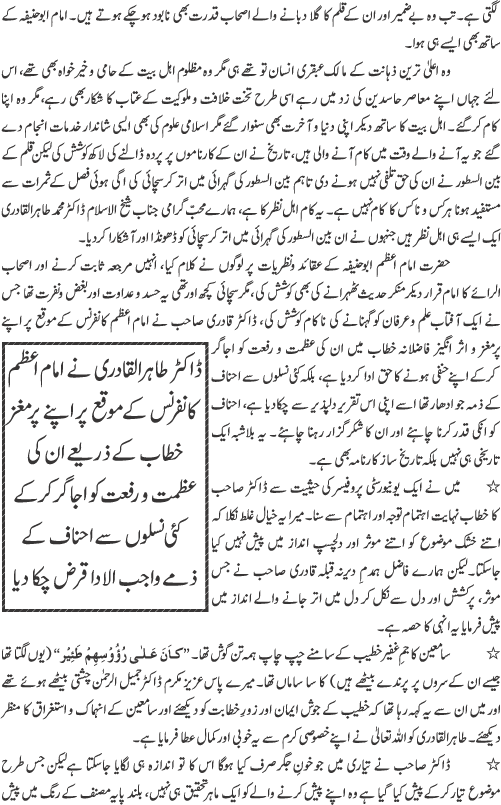 لگتی ہے۔ تب وہ بے ضمیر اور ان کے قلم کا گلا دبانے والے اصحاب قدرت بھی نابود ہو چکے ہوتے ہیں۔ امام ابوحنیفہ کے
ساتھ بھی ایسے ہی ہوا۔
وہ اعلیٰ ترین ذہانت کے مالک عبقری انسان تو تھے ہی مگر وہ مظلوم اہل بیت کے حامی و خیر خواہ بھی تھے، اس
لئے جہاں اپنے معاصر حاسدین کی زد میں رہے اسی طرح تخت خلافت و ملوکیت کے عتاب کا شکار بھی رہے، مگر وہ اپنا
کام کر گئے۔ اہل بیت کا ساتھ دیکر اپنی دنیا و آخرت بھی سنوار گئے مگر اسلامی علوم کی بھی ایسی شاندار خدمات انجام دے
گئے جو یہ آنے والے وقت میں کام آنے والی ہیں، تاریخ نے ان کے کارناموں پر پردہ ڈالنے کی لاکھ کوشش کی لیکن قلم کے
بین السطور نے ان کی حق تلفی نہیں ہونے دی تاہم بین السطور کی گہرائی میں اتر کر سچائی کی اگی ہوئی فصل کے ثمرات سے
مستفید ہونا ہر کس و ناکس کا کام نہیں ہے۔ یہ کام اہل نظر کا ہے، ہمارے محبِّ گرامی جناب شیخ الاسلام ڈاکٹر محمد طاہر القادری
ایک ایسے ہی اہل نظر ہیں جنہوں نے ان بین السطور کی گہرائی میں اتر کر سچائی کو ڈھونڈا اور آشکارا کر دیا۔
حضرت امام اعظم ابوحنیفہ کے عقائد و نظریات پر لوگوں نے کلام کیا، انہیں مرجعہ ثابت کرنے اور اصحاب
الرائے کا امام قرار دیکر منکر حدیث ٹھہرانے کی بھی کوشش کی، مگر سچائی کچھ اور تھی یہ حسد و عداوت اور بغض و نفرت تھا جس
نے ایک آفتاب علم و عرفان کو گہنانے کی ناکام کوشش کی، ڈاکٹر قادری صاحب نے امام اعظم کانفرنس کے موقع پر اپنے
پر مغز و اثر انگیز فاضلانہ خطاب میں ان کی عظمت و رفعت کو اجاگر
کر کے اپنے حنفی ہونے کا حق ادا کر دیا ہے، بلکہ کئی نسلوں سے احناف
کے ذمہ جو ادھار تھا اسے اپنی اس تقریر دلپذیر سے چکا دیا ہے، احناف
کو انکی قدر کرنا چاہئے اور ان کا شکر گزار رہنا چاہئے۔ یہ بلاشبہ ایک
تاریخی ہی نہیں بلکہ تاریخ ساز کارنامہ بھی ہے۔
ڈاکٹر طاہر القادری نے امام اعظم
کانفرنس کے موقع پر اپنے پر مغز
خطاب کے ذریعے ان کی
عظمت و رفعت کو اجاگر کر کے
کئی نسلوں سے احناف کے
ذمے واجب الادا قرض چکا دیا
☆ میں نے ایک یونیورسٹی پروفیسر کی حیثیت سے ڈاکٹر صاحب
کا خطاب نہایت اہتمام توجہ اور اہتمام سے سنا۔ میرا یہ خیال غلط نکلا کہ
اتنے خشک موضوع کو اتنے موثر اور دلچسپ انداز میں پیش نہیں کیا
جا سکتا۔ لیکن ہمارے فاضل ہمدم دیرینہ قبلہ قادری صاحب نے جس
موثر، پرکشش اور دل سے نکل کر دل میں اتر جانے والے انداز میں
پیش فرمایا یہ انہی کا حصہ ہے۔
☆ سامعین کا جم غفیر خطیب کے سامنے چپ چاپ ہمہ تن گوش تھا۔ ”كَأنَ عَلٰى رُؤُوْسِهِمْ طَيْر“ (یوں لگتا تھا
جیسے ان کے سروں پر پرندے بیٹھے ہیں) کا سا سماں تھا۔ میرے پاس عزیز مکرم ڈاکٹر جمیل الرحمٰن چشتی بیٹھے ہوئے تھے
اور میں ان سے یہ کہہ رہا تھا کہ خطیب کے جوش ایمان اور زور خطابت کو دیکھئے اور سامعین کے انہماک و استغراق کا منظر
دیکھئے۔ طاہر القادری کو اللہ تعالیٰ نے اپنے خصوصی کرم سے یہ خوبی اور کمال عطا فرمایا ہے۔
☆ ڈاکٹر صاحب نے تیاری میں جو خونِ جگر صرف کیا ہوگا اس کا تو اندازہ ہی لگایا جا سکتا ہے لیکن جس طرح
موضوع تیار کر کے پیش کیا گیا ہے وہ اپنے کرنے والے کو ایک ماہر تحقیق ہی نہیں، بلند پایہ مصنف کے رنگ میں پیش